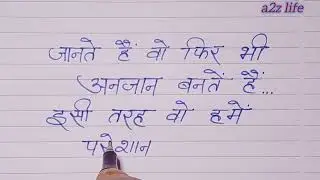 a2z life
जानते हैं वो फिर भी
अनजान बनतें हैं...
इसी तरह वो हमें
परेशान